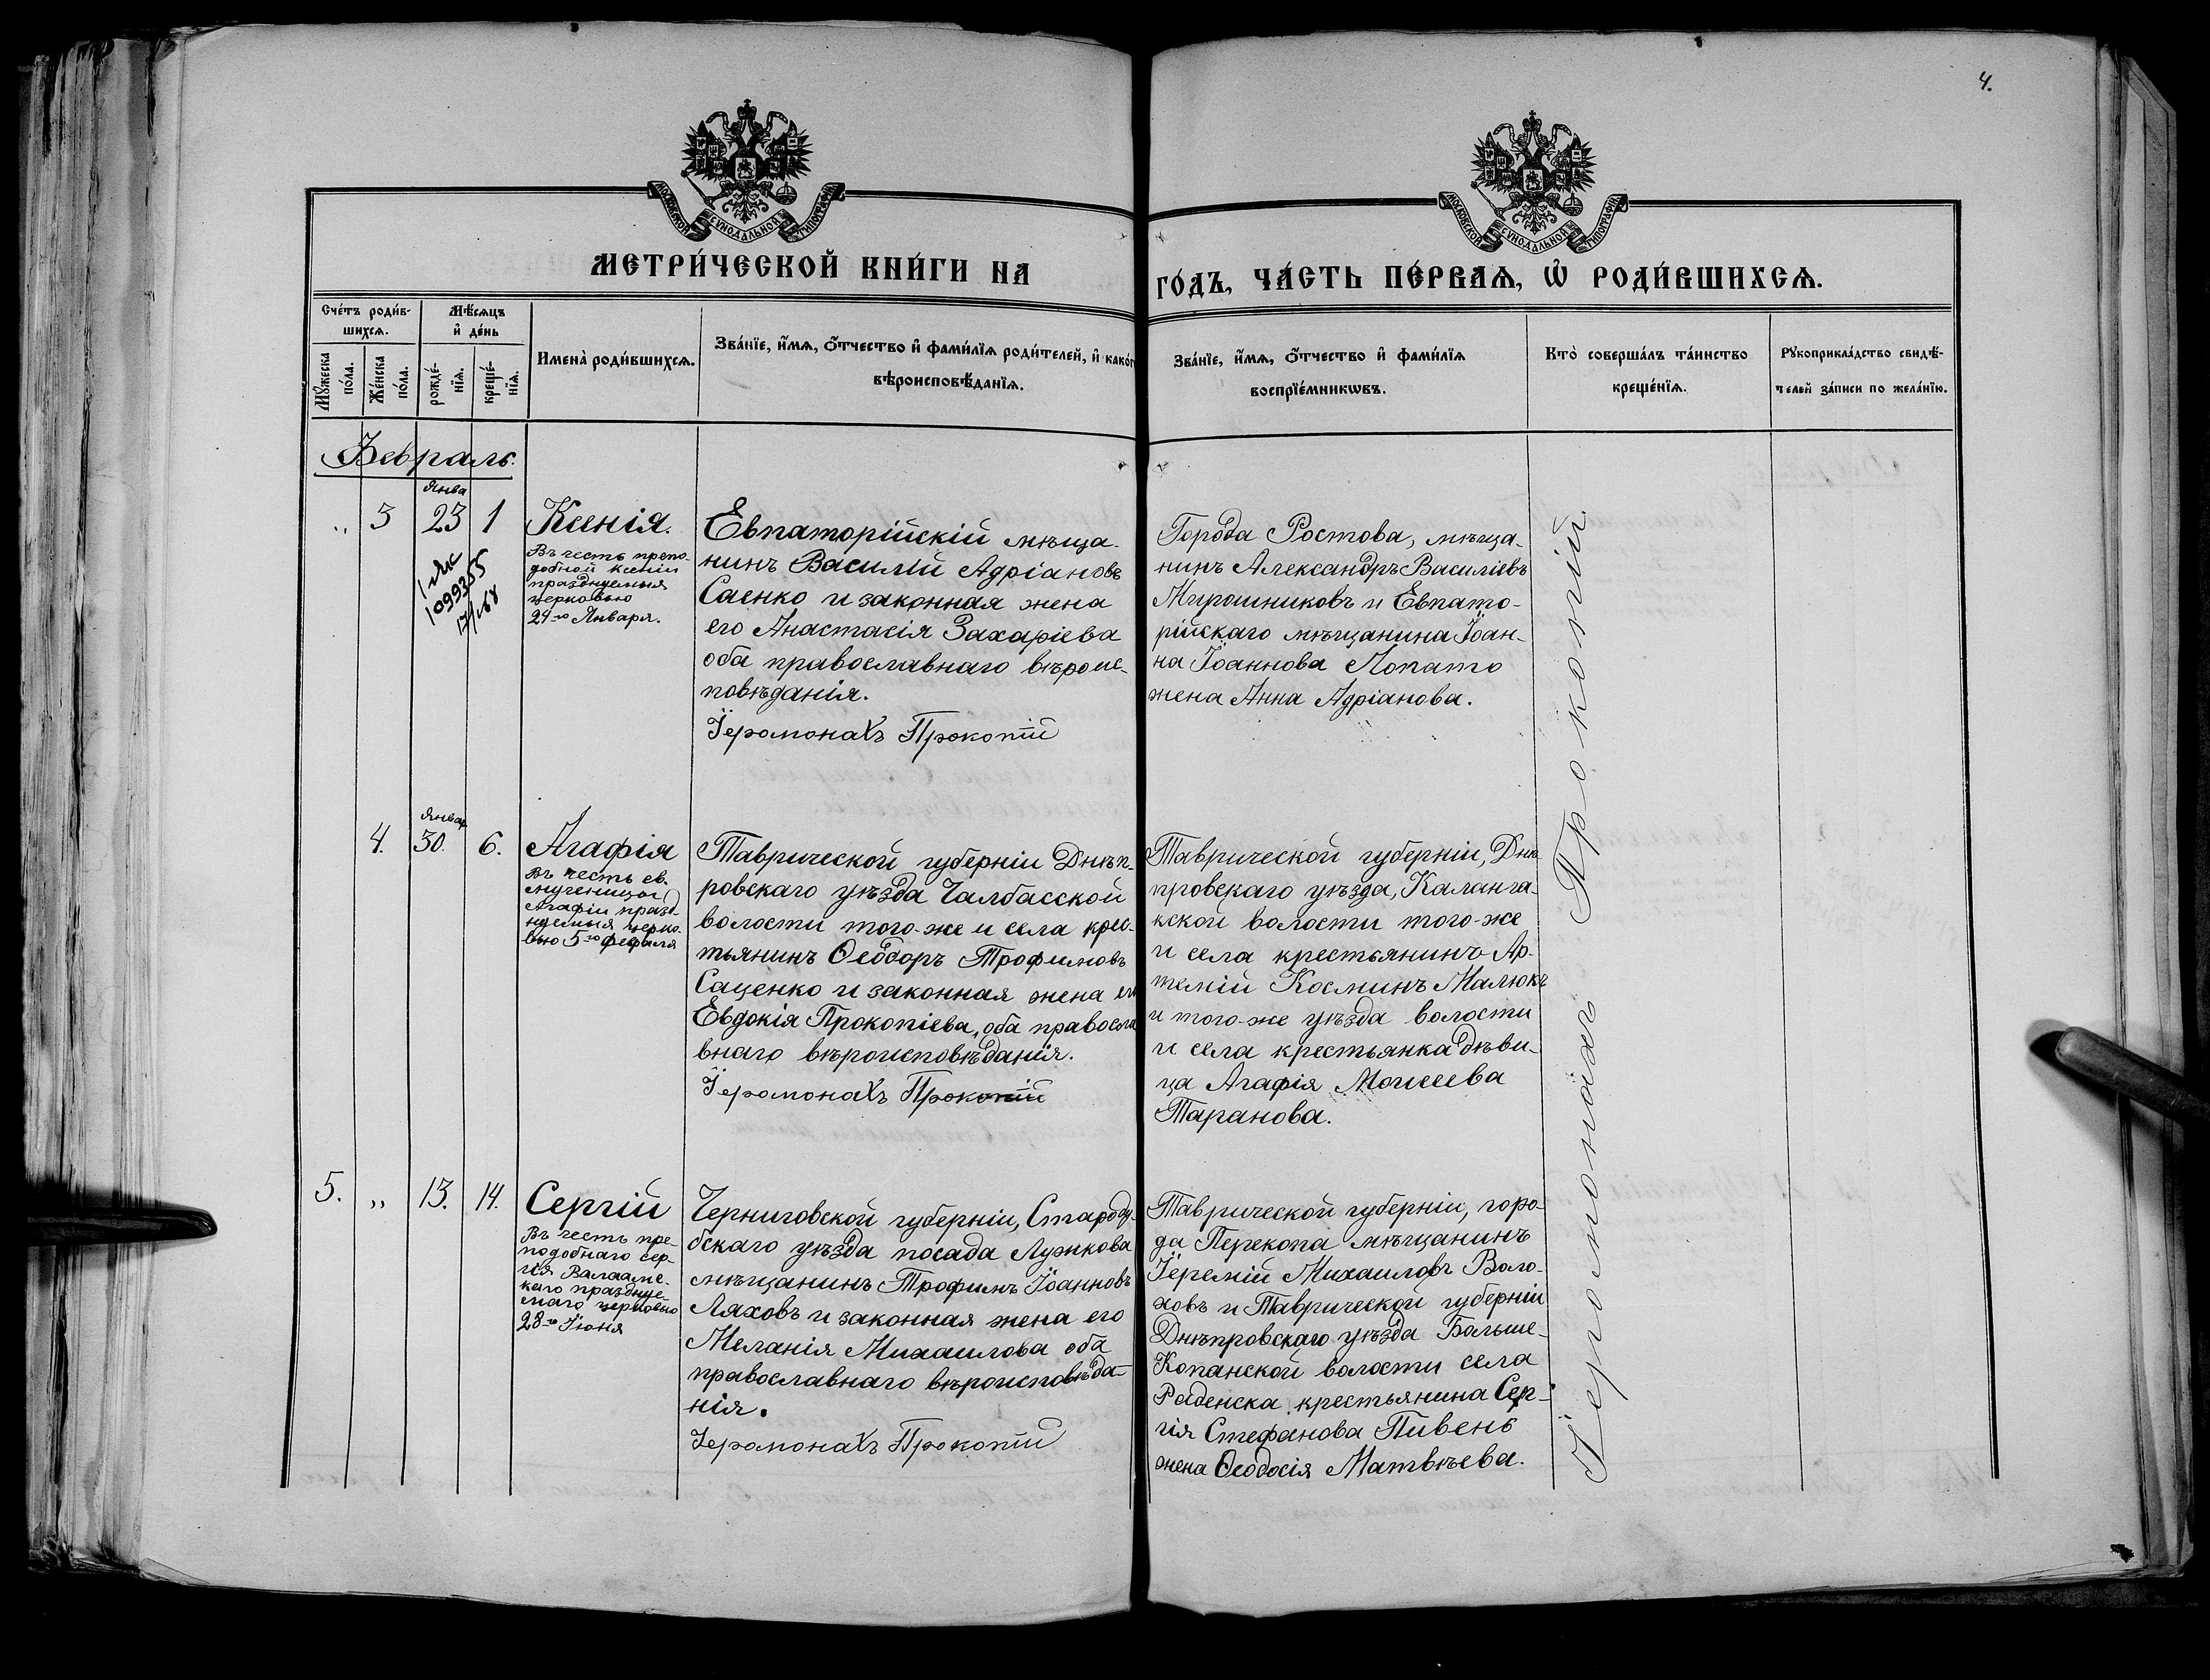 4.
МОСКОВСКОЙ СУНОДАЛЬНОЙ ТИПОГРАФІИ
МОСКОВСКОЙ СУНОДАЛЬНОЙ ТИПОГРАФІИ
МЕТРИ́ЧЕСКОЙ КНИ́ГИ НА
ГО́ДЪ, ЧА́СТЬ ПЕ́РВАѦ, Ѡ҆ РОДИ́ВШИХСѦ.
Сче́тъ роди́в-
шихсѧ.
Мѣ́сѧцъ
и҆ де́нь
Мꙋ́жеска
по́ла.
Же́нска
по́ла.
рожде́-
нїѧ.
креще́-
нїѧ.
Имена̀ роди́вшихсѧ.
Зва́нїе, и҆́мѧ, ѻ҆́тчество и҆ фами́лїѧ роди́телей, и҆ како́гѡ
вѣроисповѣ́данїѧ.
Зва́нїе, и҆́мѧ, ѻ҆́тчество и҆ фами́лїѧ
воспрїе́мникѡвъ.
Кто̀ соверша́лъ та́инство
креще́нїѧ.
Рꙋкоприкла́дство свидѣ́-
телей за́писи по жела́нїю.
Февраль.
„ 3 Янва 23 1
1 ЯК
1099355
17/I 68
Ксенія.
Въ честь препо-
добной Ксеніи
празднуемыя
церковью
24-го Января.
Евпаторійскій мѣща-
нинъ Василій Адріановъ
Саенко и законная жена
его Анастасія Захаріева
оба православнаго вѣроис-
повѣданія.
Іеромонахъ Прокопій
Города Ростова, мѣща-
нинъ Александръ Василіевъ
Мирошниковъ и Евпато-
рійскаго мѣщанина Іоан-
на Іоаннова Лопато
жена Анна Адріанова.
4. Январ 30. 6.
Агафія
Въ честь св.
мученицы
Агафіи празд-
нуемыя церко-
вью 5-го февраля
Таврической губерніи Днѣп-
ровскаго уѣзда Чалбасской
волости того-же и села крес-
тьянинъ Ѳеодоръ Трофимовъ
Саценко и законная жена его
Евдокія Прокопіева, оба правосла
внаго вѣроисповѣданія.
Іеромонахъ Прокопій
Таврической губерніи, Днѣ-
провскаго уѣзда, Каланча-
кской волости того-же
и села крестьянинъ Ар-
темій Косминъ Малюкъ
и того-же уѣзда волости
и села крестьянка дѣви-
ца Агафія Моисеева
Таранова.
5. „ 13. 14.
Сергій
Въ честь пре-
подобнаго Сер-
гія Валаамс-
каго празднуе-
маго церковью
28-го Іюня
Черниговской губерніи, Староду-
бскаго уѣзда посада Лужкова
мѣщанинъ Трофимъ Іоанновъ
Ляховъ и законная жена его
Меланія Михаилова оба
православнаго вѣроисповѣда-
нія.
Іеромонахъ Прокопій
Таврической губерніи, горо-
да Перекопа мѣщанинъ
Іеремій Михаиловъ Воло-
ховъ и Таврической губерніи
Днѣпровскаго уѣзда Больше-
Копанской волости села
Раденска крестьянина Сер-
гія Стефанова Пивень
жена Ѳеодосія Матвѣева.
Іеромонахъ Прокопій